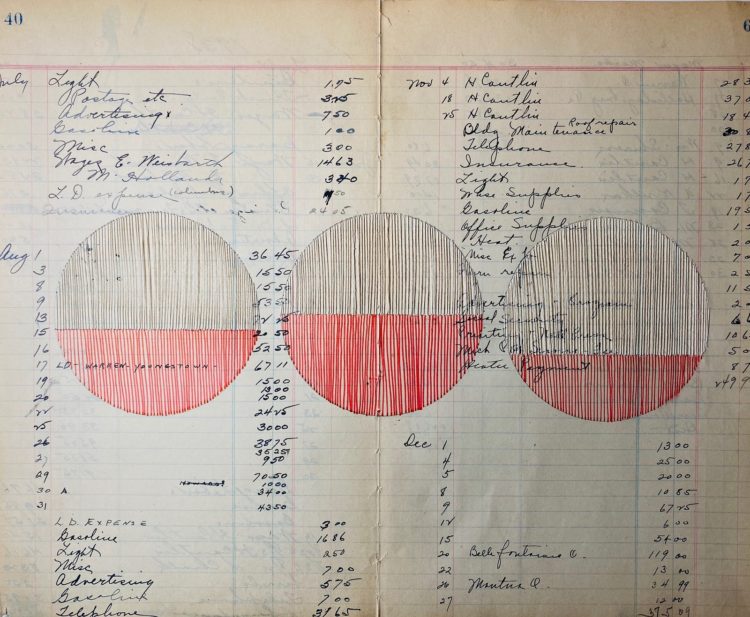 40
July Light 1.75
Postage etc 3.25
Advertising 7 50
Gasoline 1 00
Misc 3 00
Wages E. Weisbarth 14 63
M. Hollands 3 40
L. D. expense (Columbus)
24 05
Aug 1 36 45
3 15 50
8 15 50
9 53 50
13
15 20 50
16 52 50
17 LD - WARREN - YOUNGSTOWN - 67 11
19 15 00
13 00
20 15 00
22 24 25
25 30 00
26 38 75
35 25
27 9 50
29 70 50
10 00
30 A 34 00
31 43 50
L. D. EXPENSE 3 00
Gasoline 16 86
Light 2 50
Misc 7 00
Advertising 5 75
Gasoline 7 00
Telephone 31 65
6
Nov 4 H Cautlin 28 3
18 H Cautlin 37 0
25 H Cautlin 18 4
Bldg Maintenance Roof repair 30
Telephone 27 8
Insurance 26
Light 17
Whse Supplies 17
Gasoline 19
Office Supplies 1
Heat 20
Misc Ex 7 0
2
11 5
Advertising - Program 2
Social Security 6
106
50
87
2499
Dec 1 13 00
4 25 00
5 20 00
8 10 85
9 67 25
12 6 00
15 54 00
20 Bellefontaine O. 119 00
22 13 00
26 Mantua O. 34 99
27 12 00
375 09